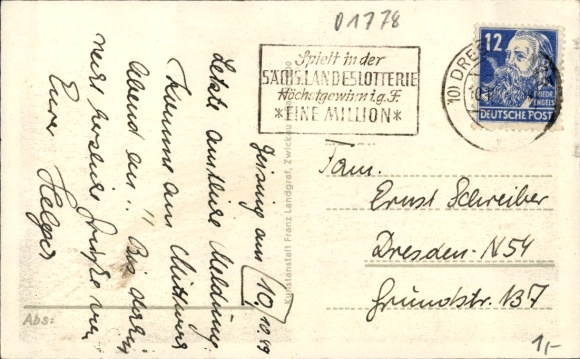 D1778
Spielt in der
SÄCHS. LANDESLOTTERIE
Höchstgewinn i.g.F.
*EINE MILLION*
10) DRES
12
FRIEDR.
ENGELS
DEUTSCHE POST
Geising am 10/10.49
Letzte amtliche Meldung:
kommen am Mittwoch
Abend an." Bis dahin
recht herzliche Grüße von
Eurer Helga
Kunstanstalt Franz Landgraf, Zwickau
Fam.
Ernst Schreiber
Dresden-N54
Grundstr. 137
Abs:
1,-